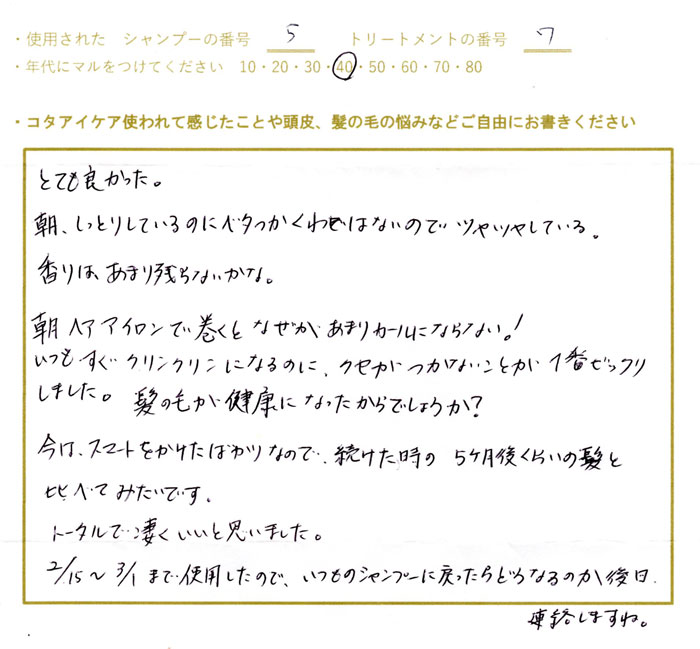 ・使用された シャンプーの番号 5 トリートメントの番号 7
・年代にマルをつけてください 10・20・30・40・50・60・70・80
・コタアイケア使われて感じたことや頭皮、髪の毛の悩みなどご自由にお書きください
とても良かった。
朝、しっとりしているのにベタつかくわではないのでツヤツヤしている。
香りは、あまり残らないかな。
朝ヘアアイロンで巻くとなぜかあまりカールにならない。!
いつもすぐクリンクリンになるのに、クセがつかないことが1番ビックリ
しました。髪の毛が健康になったからでしょうか?
今は、スマートをかけたばかりなので、続けた時の5ヶ月後くらいの髪と
比べてみたいです。
トータルで凄くいいと思いました。
2/15〜3/1まで使用したので、いつものシャンプーに戻ったらどうなるのか後日
連絡しますね。